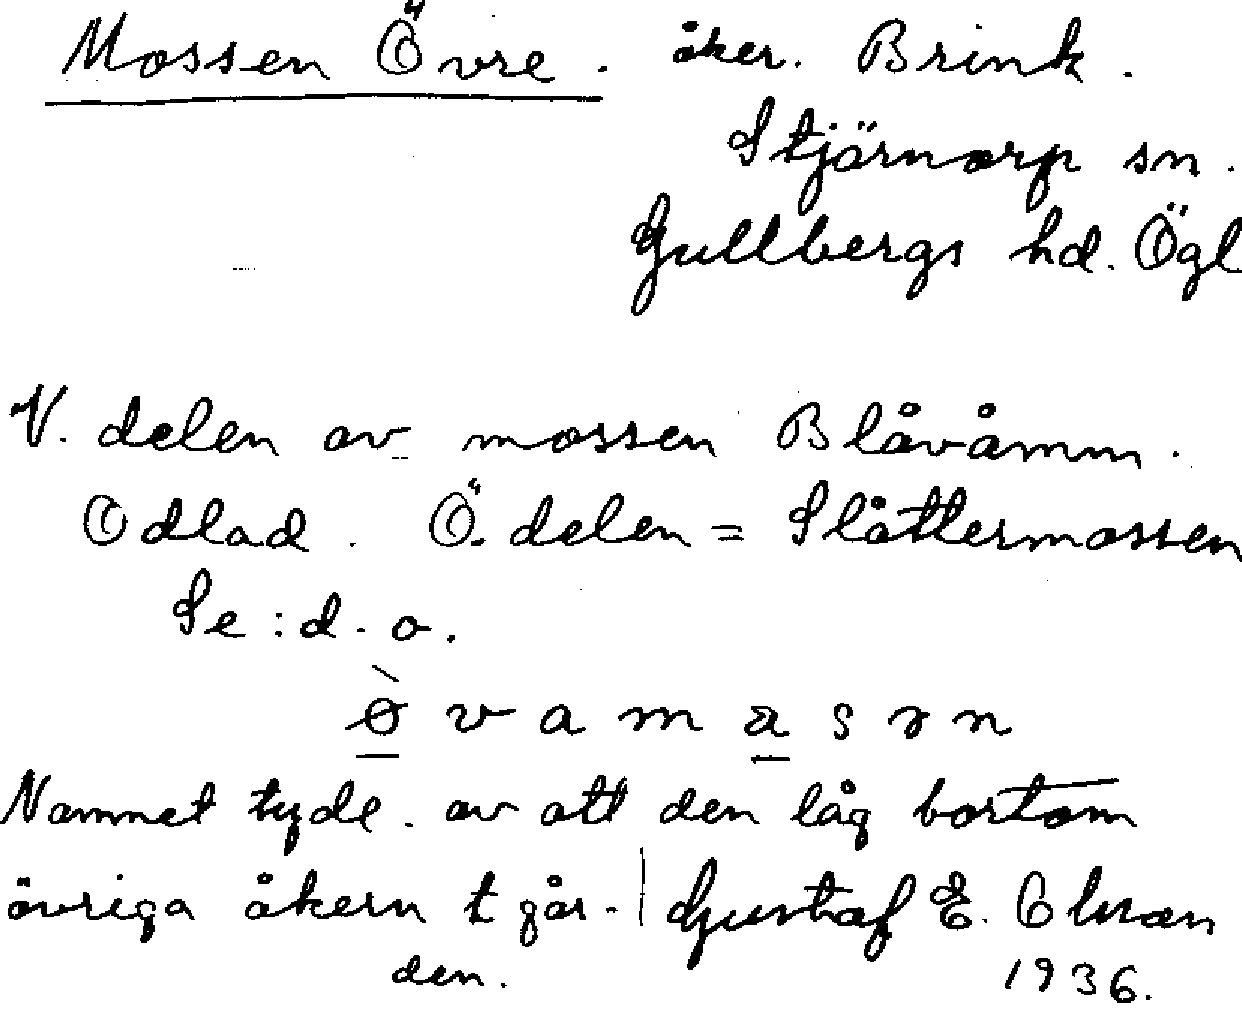 Mossen Övre. åker. Brink.
Stjärnorp sn.
Gullbergs hd. Ögl
V. delen av mossen Blåvåmm.
Odlad. Ö. delen = Slåttermossen
Se: d. o.
ø̀ v a m a s ɘ n
Namnet tyde. av att den låg bortom
övriga åkern t går- | Gustaf E. Olsson
den. 1936.